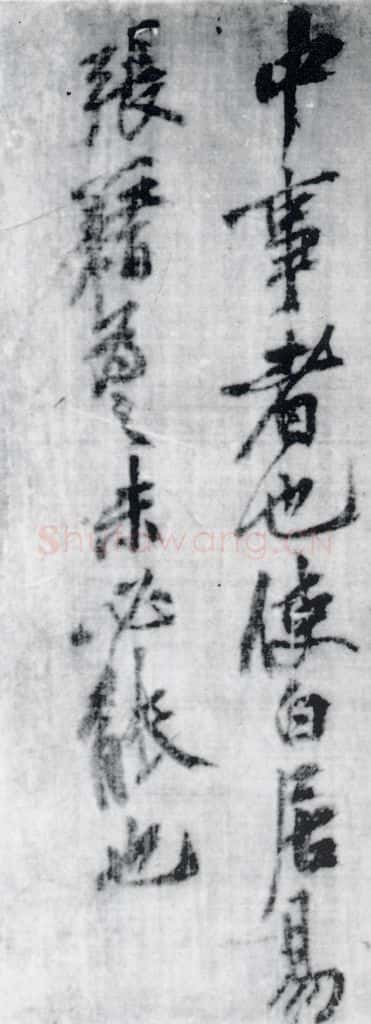 中事者也使白居易
張籍為之未必能也
Shufawang.CN